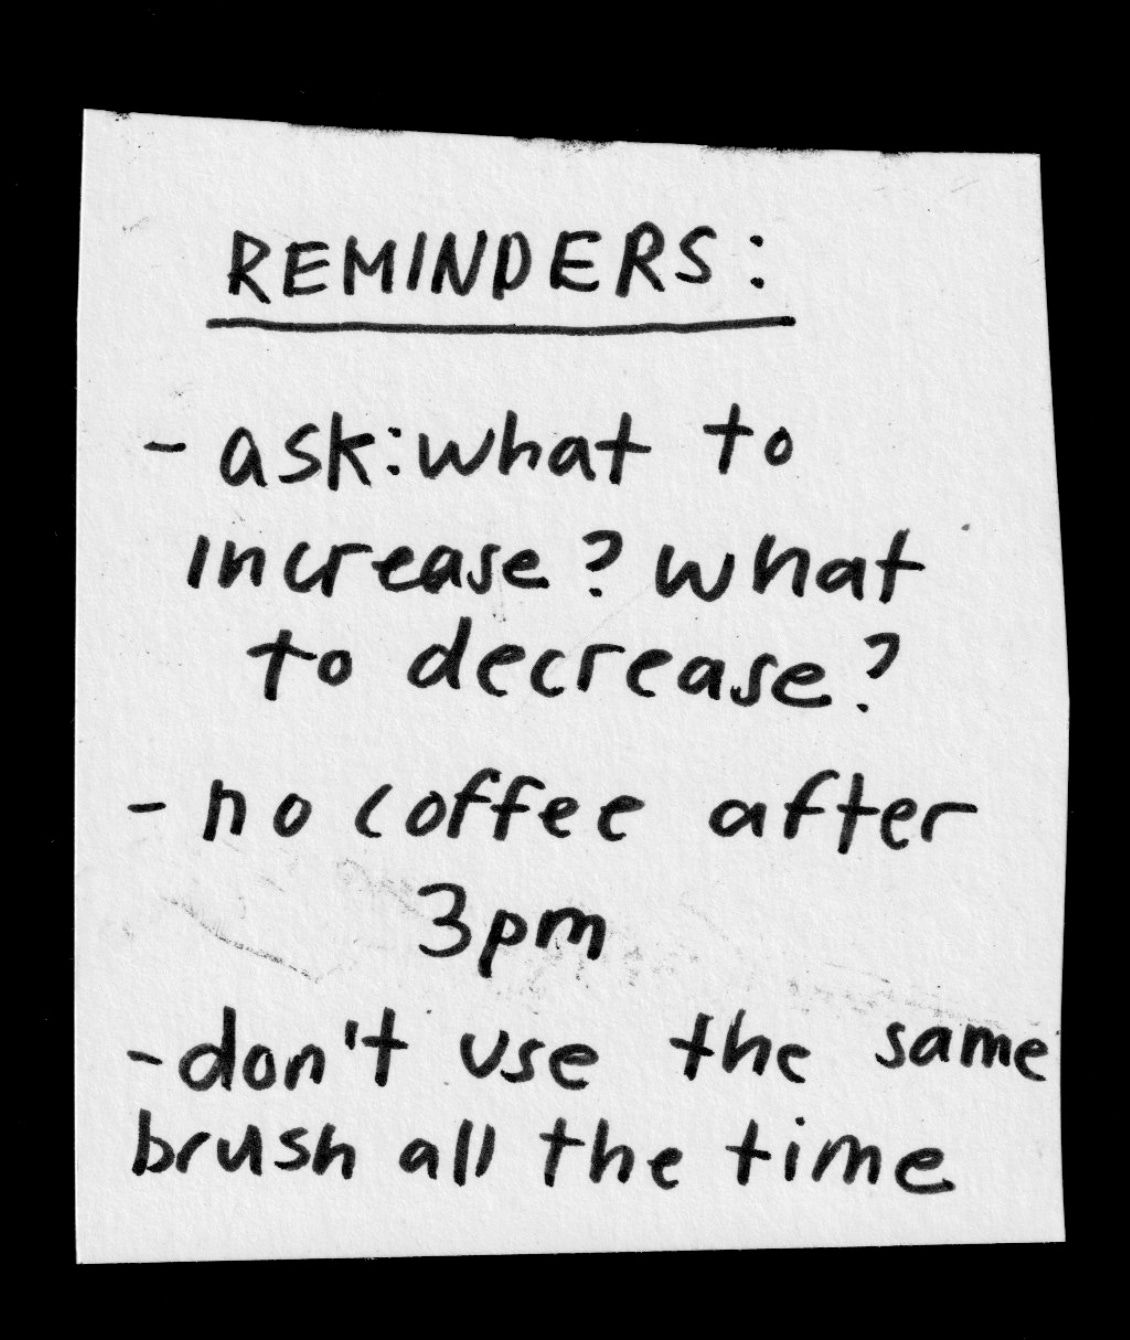 REMINDERS:
- ask: what to
increase? what
to decrease?
- no coffee after
3pm
- don't use the same
brush all the time